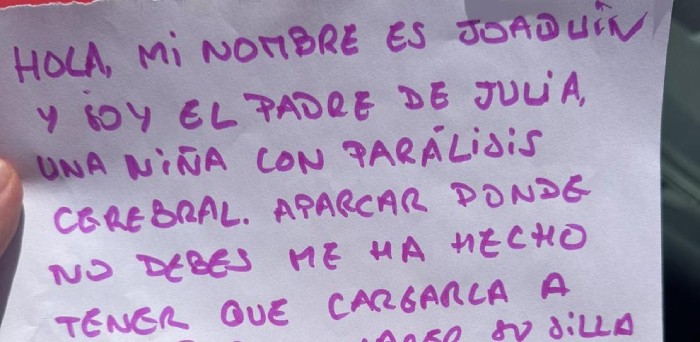 HOLA, MI NOMBRE ES JOAQUÍN
Y SOY EL PADRE DE JULIA,
UNA NIÑA CON PARÁLISIS
CEREBRAL. APARCAR DONDE
NO DEBES ME HA HECHO
TENER QUE CARGARLA A
SU SILLA